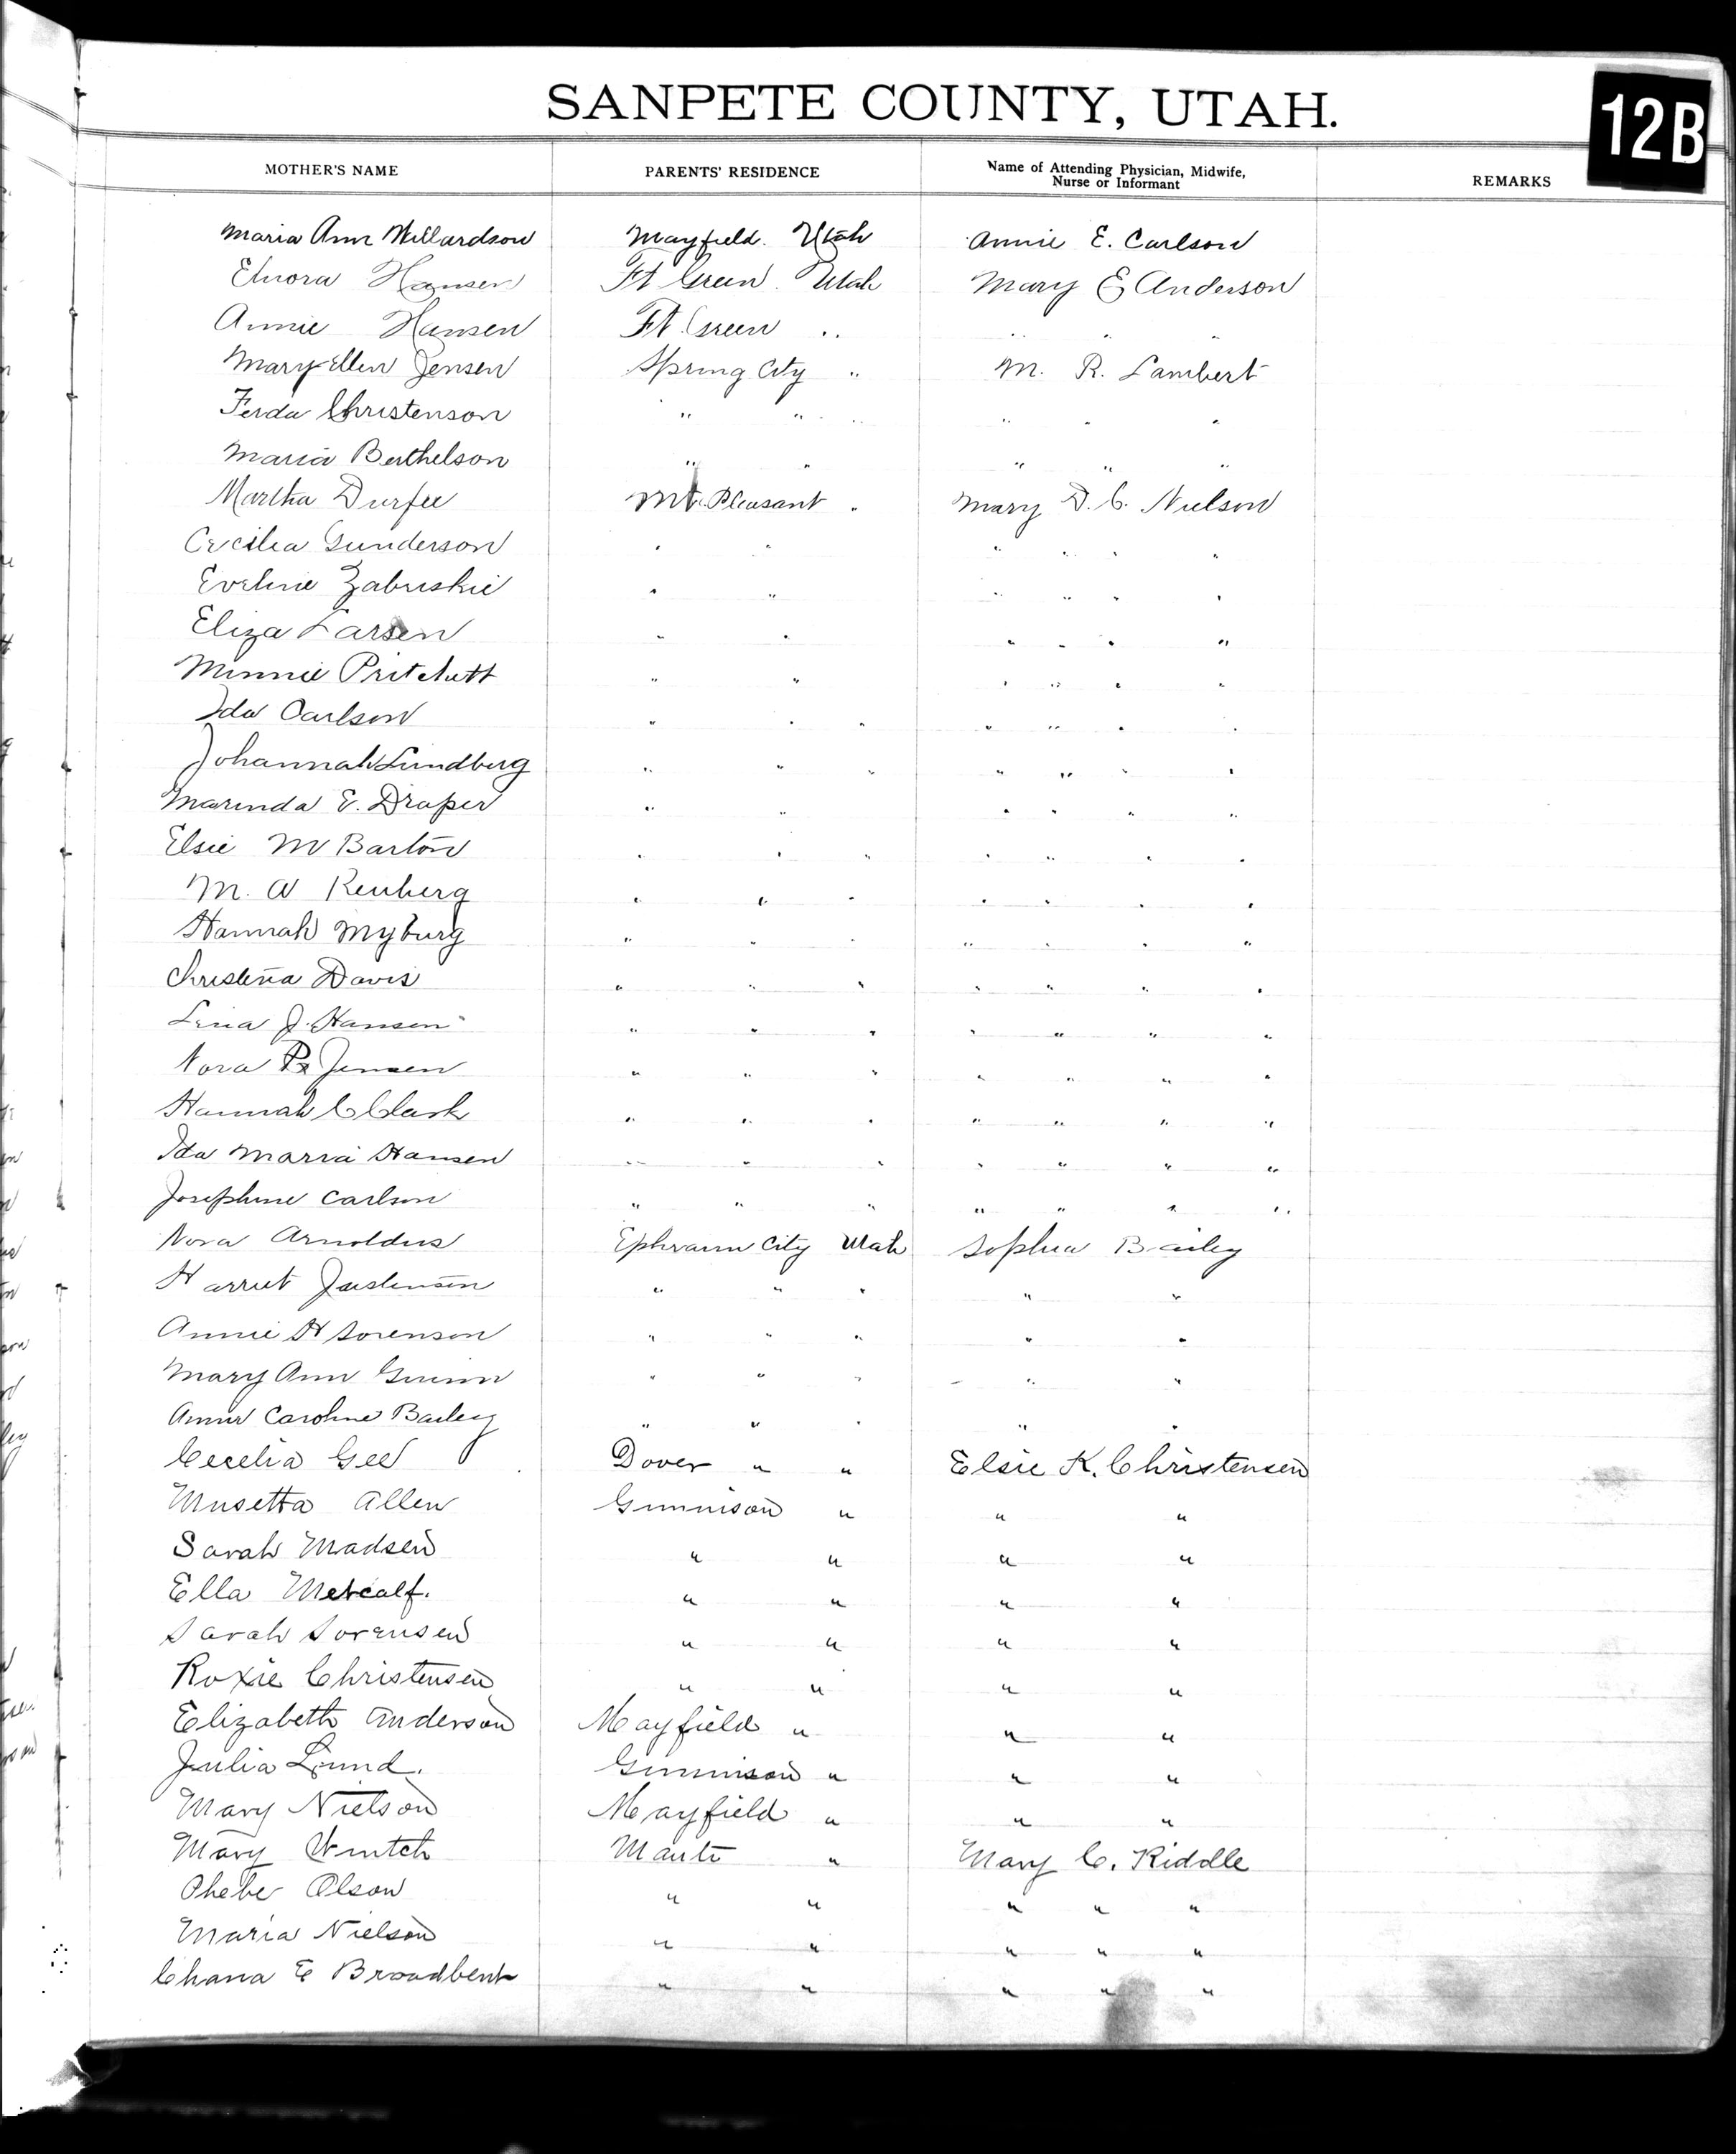 SANPETE COUNTY, UTAH.
12B
MOTHER'S NAME PARENTS' RESIDENCE Name of Attending Physician, Midwife, Nurse or Informant REMARKS
Maria Ann Willardson Mayfield. Utah Annie E. Carlson
Elnora Hansen Ft Green. Utah Mary E Anderson
Annie Hansen Ft. Green " " " "
Mary Ellen Jensen Spring City " M. R. Lambert
Ferda Christenson " " " " " "
Maria Berthelson " " " " "
Martha Durfee Mt. Pleasant " Mary D. C. Nielson
Cecilia Gunderson " " " " " "
Eveline Zabriskie " " " " " "
Eliza Larsen " " " " " "
Minnie Pritchett " " " " " "
Ida Carlson " " " " " " "
Johannah Lundberg " " " " " " "
Marinda E. Draper " " " " " "
Elsie M Barton " " " " " " "
M. A Renberg " " " " " " "
Hannah Myburg " " " " " " "
Christena Davis " " " " " " "
Lena J. Hansen " " " " " " "
Nora P. Jensen " " " " " " "
Hannah C Clark " " " " " " "
Ida Marria Hansen " " " " " " "
Josephine Carlson " " " " " " "
Nora Arnoldus Ephraim City Utah Sophia Bailey
Harriet Justensen " " " " "
Annie H Sorenson " " " " "
Mary Ann " " " " "
Annie Caroline Bailey " " " " "
Cecelia Gee Dover " " Elsie K. Christensen
Musetta Allen Gunnison " " "
Sarah Madsen " " " "
Ella Metcalf. " " " "
Sarah Sorensen " " " "
Roxie Christensen " " " "
Elizabeth Anderson Mayfield " " "
Julia Lund. Gunnison " " "
Mary Nielson Mayfield " " "
Mary Wintch Manti " Mary C. Riddle
Phebe Olson " " " " "
Maria Nielson " " " " "
Chana E Broadbent " " " " "